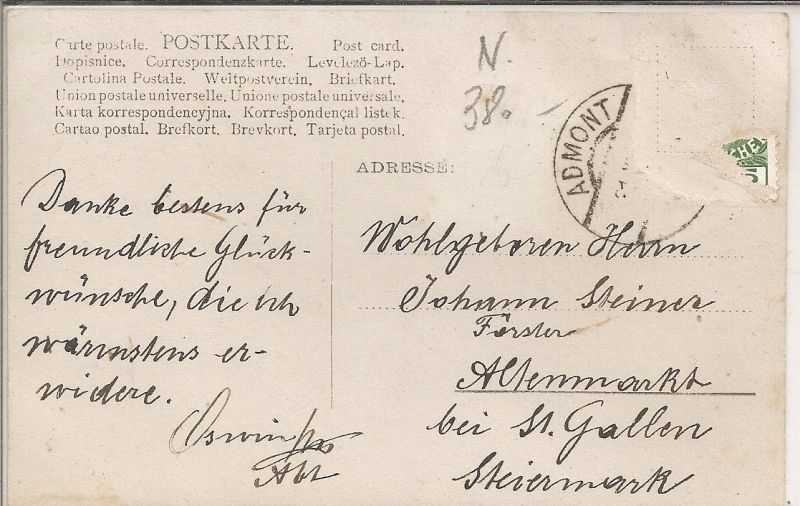 Carte postale. POSTKARTE. Post card.
Dopisnice. Correspondenzkarte. Levelező-Lap.
Cartolina Postale. Weltpostverein. Briefkart.
Union postale universelle. Unione postale universale.
Karta korrespondencyjna. Korrespondençal listek.
Cartao postal. Brefkort. Brevkort. Tarjeta postal.
N.
38.-
ADMONT
ADRESSE:
Danke bestens für
freundliche Glück-
wünsche, die ich
wärmstens er-
widere.
Oswin
Abt
Wohlgeboren Herrn
Johann Steiner
Förster
Altenmarkt
bei St. Gallen
Steiermark